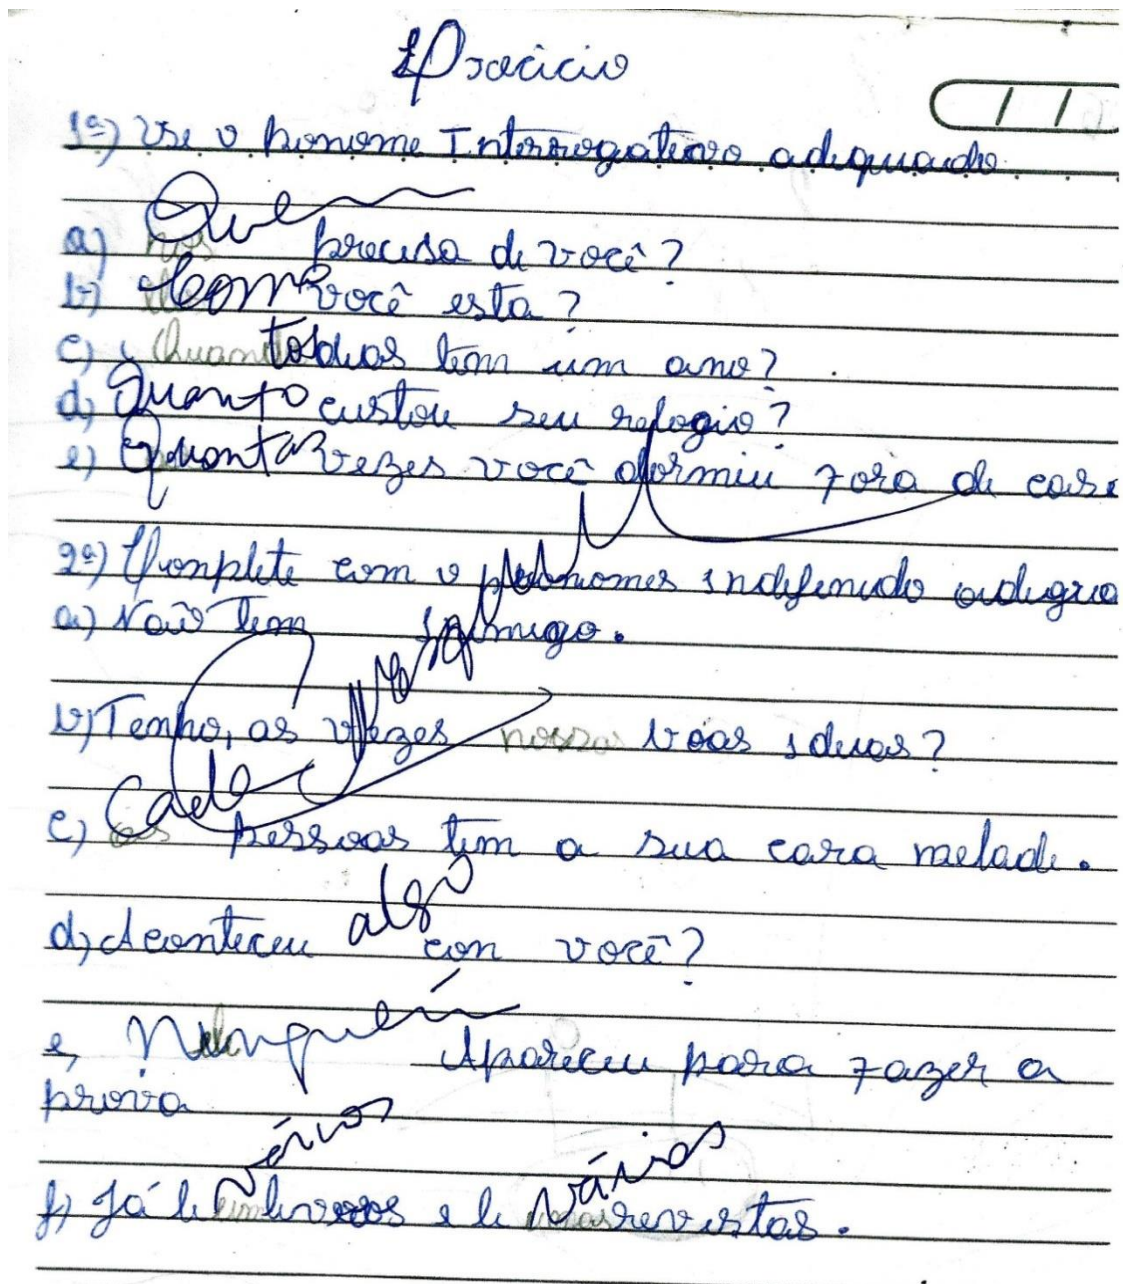 Exercicio
1º) Use o pronome Interrogativo adequado
a) Quem precisa de você?
b) Como você esta?
c) Quantos dias tem um ano?
d) Quanto custou seu relogio?
e) Quantas vezes você dormiu fora de casa
2º) Conplete com o pronomes indefinido
a) Naõ tem inimigo.
b) Tenho, as vezes boas ideias?
c) Cada pessoas tem a sua cara metade.
d) Aconteceu algo con você?
e) Ninguém Apareceu para fazer a
prova
f) Já li vários livros e li várias revistas.